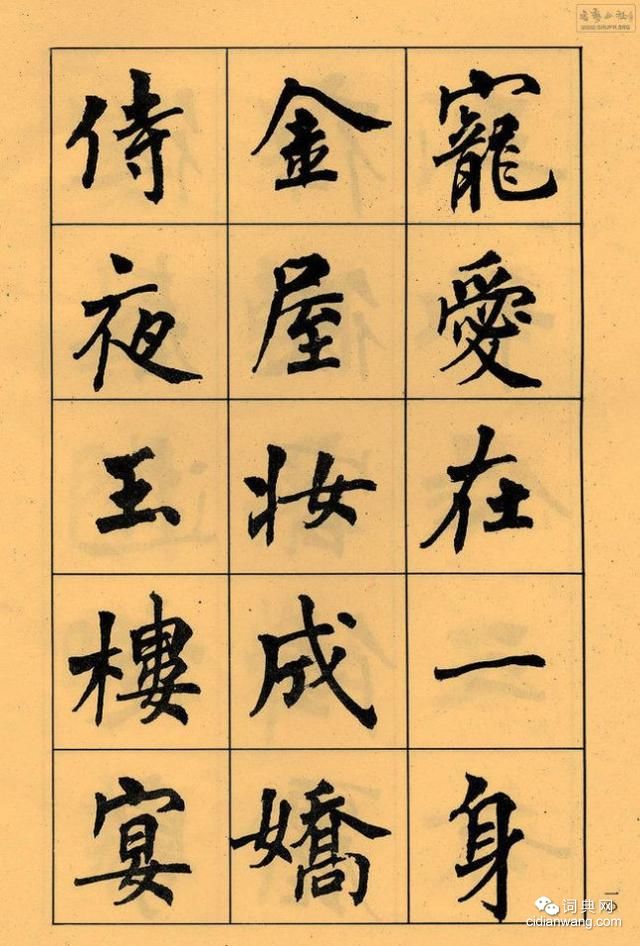 寵愛在一身
金屋妝成嬌
侍夜玉樓宴
词典网
cidianwang.com